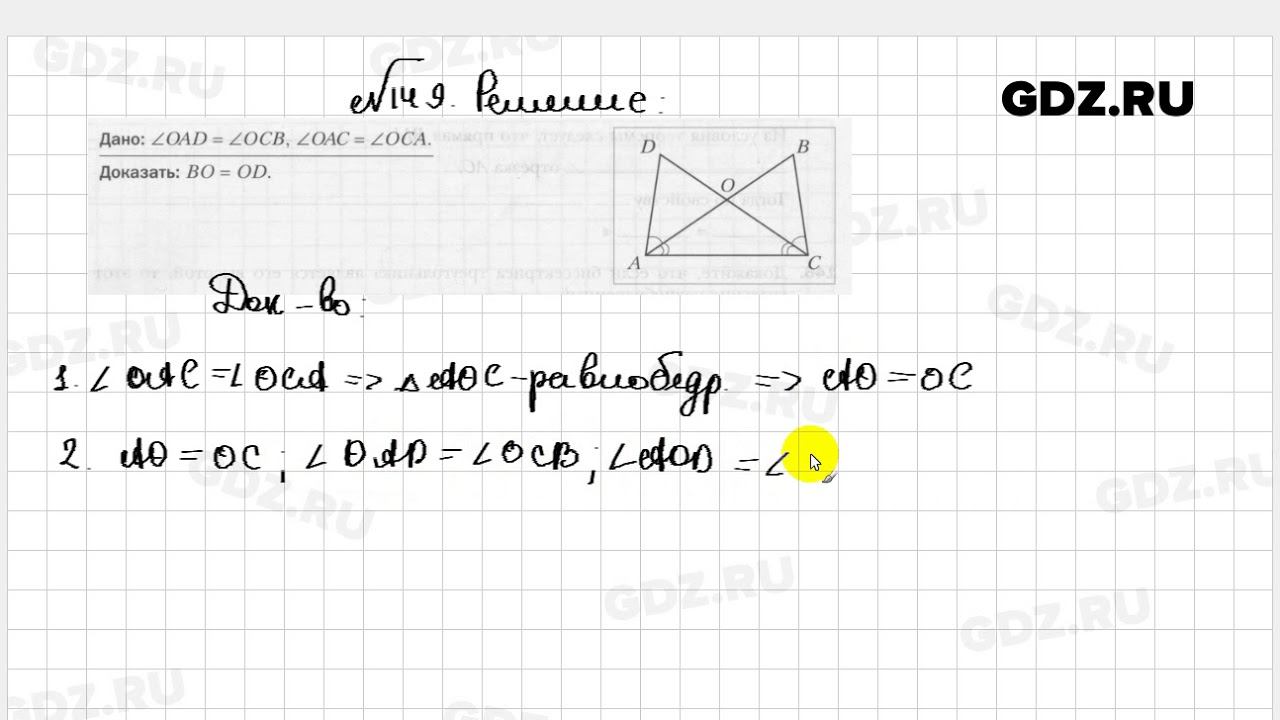 GDZ.RU
№149. Решение:
Дано: ∠OAD = ∠OCB, ∠OAC = ∠OCA.
Доказать: BO = OD.
D B
O
A C
Док-во:
1. ∠OAC = ∠OCA => △AOC - равнобедр. => AO = OC
2. AO = OC; ∠OAD = ∠OCB; ∠AOD = ∠